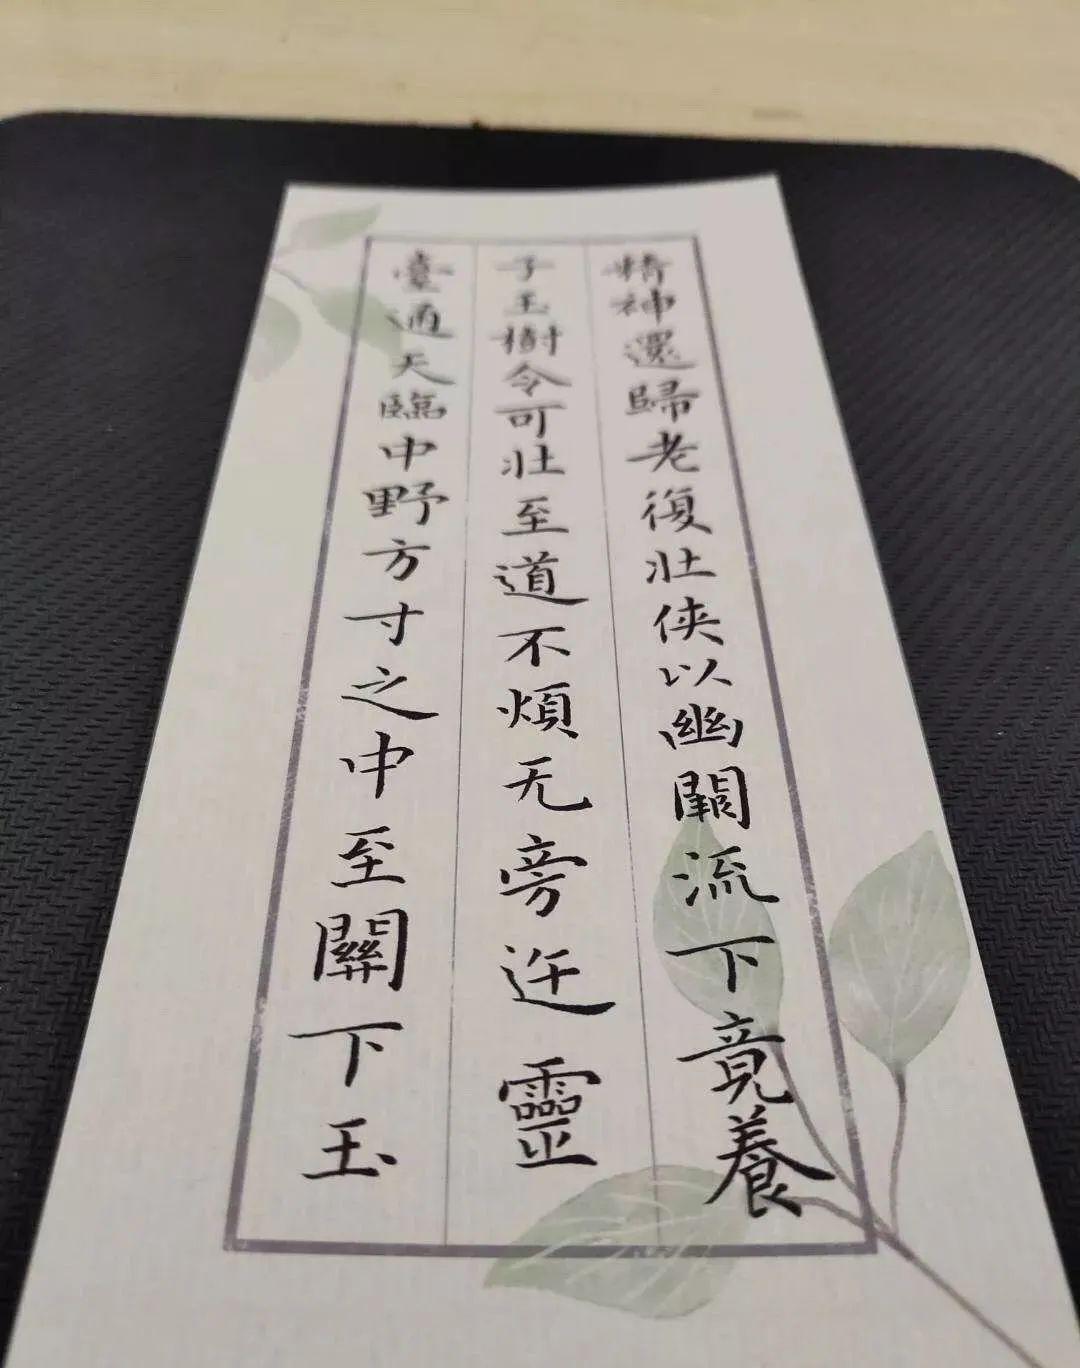 精神還歸老復壯俠以幽闕流下竟養
子玉樹令可壯至道不煩无旁迕靈
臺通天臨中野方寸之中至關下玉